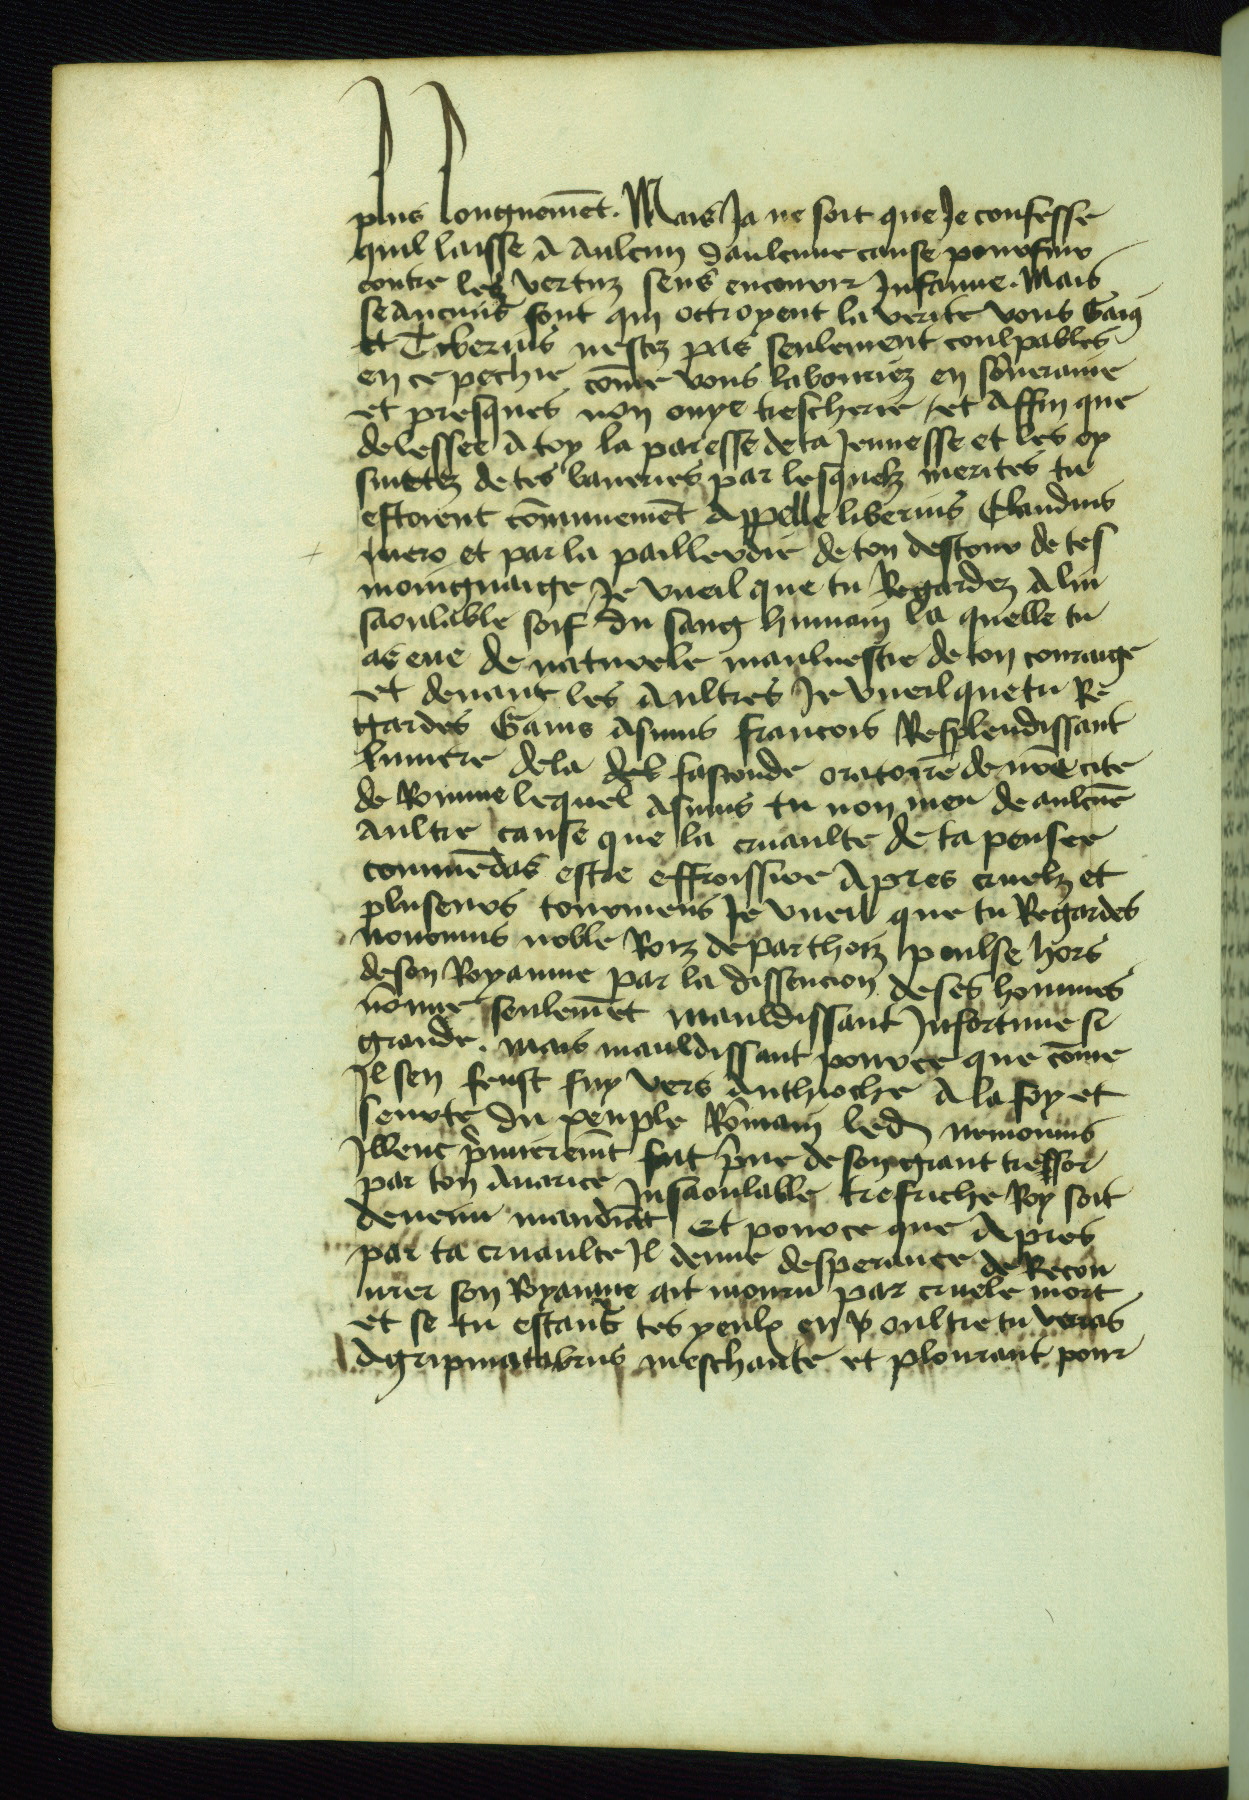 plus longuemēt. Mais Ja ne soit que Je confesse
quil laisse A Aulcun daulcune cause poursuir
contre les vertuz sens encourir Infamie. Mais
se Aucuns sont qui octroyent la verite vous Gaius
et Tiberius nestez pas seulement coulpables
en ce pechie cōme vous labouriez en souueraine
et presques non ouye trescherie / et Affin que
delessee A toy la paresse de ta Jeunesse et les oy
siuetez de tes baueries par lesquelz merites tu
estoient cōmunemēt Appelle liberius Claudius
mero et par la paillerdie de ton destour de tes
moingnaige Je vueil que tu Regardez A lin
saoulable soif du sang humain la quelle tu
as eue de naturele mauluestie de ton couraige
et deuant les Aultres Je vueil que tu Re
gardes Gaius Asinus francois Resplendissant
lumiere de la faconde oratoire de nr̄e cite
de Romme lequel Asinus tu non meu de aulcūe
Aultre cause que la cruaulte de ta pensee
commēdas estre effroissiee Apres cruelz et
pluseurs tourmens Je vueil que tu Regardes
nonomus noble Roiz de parthoiz poulse hors
de son Royaume par la dissencion de ses hommes
nōmie seulemēt mauldissant Infortune si
grande. mais mauldissant pource que cōme
Il sen feust fuy vers Anthioche A la foy et
seurte du peuple Rōmain led nemonius
Illenc p̄mieremt̄ fut p̄ue de son grant tressor
par ton Auarice Insaoulable tresriche Roy soit
deuenu mandiāt Et pource que Apres
par ta cruaulte Il denue desperance de Recou
urer son Royaume ait mouru par cruele mort
et se tu estans tes yeulx en oultre tu verras
Agripinatabrus meschante et plourant pour